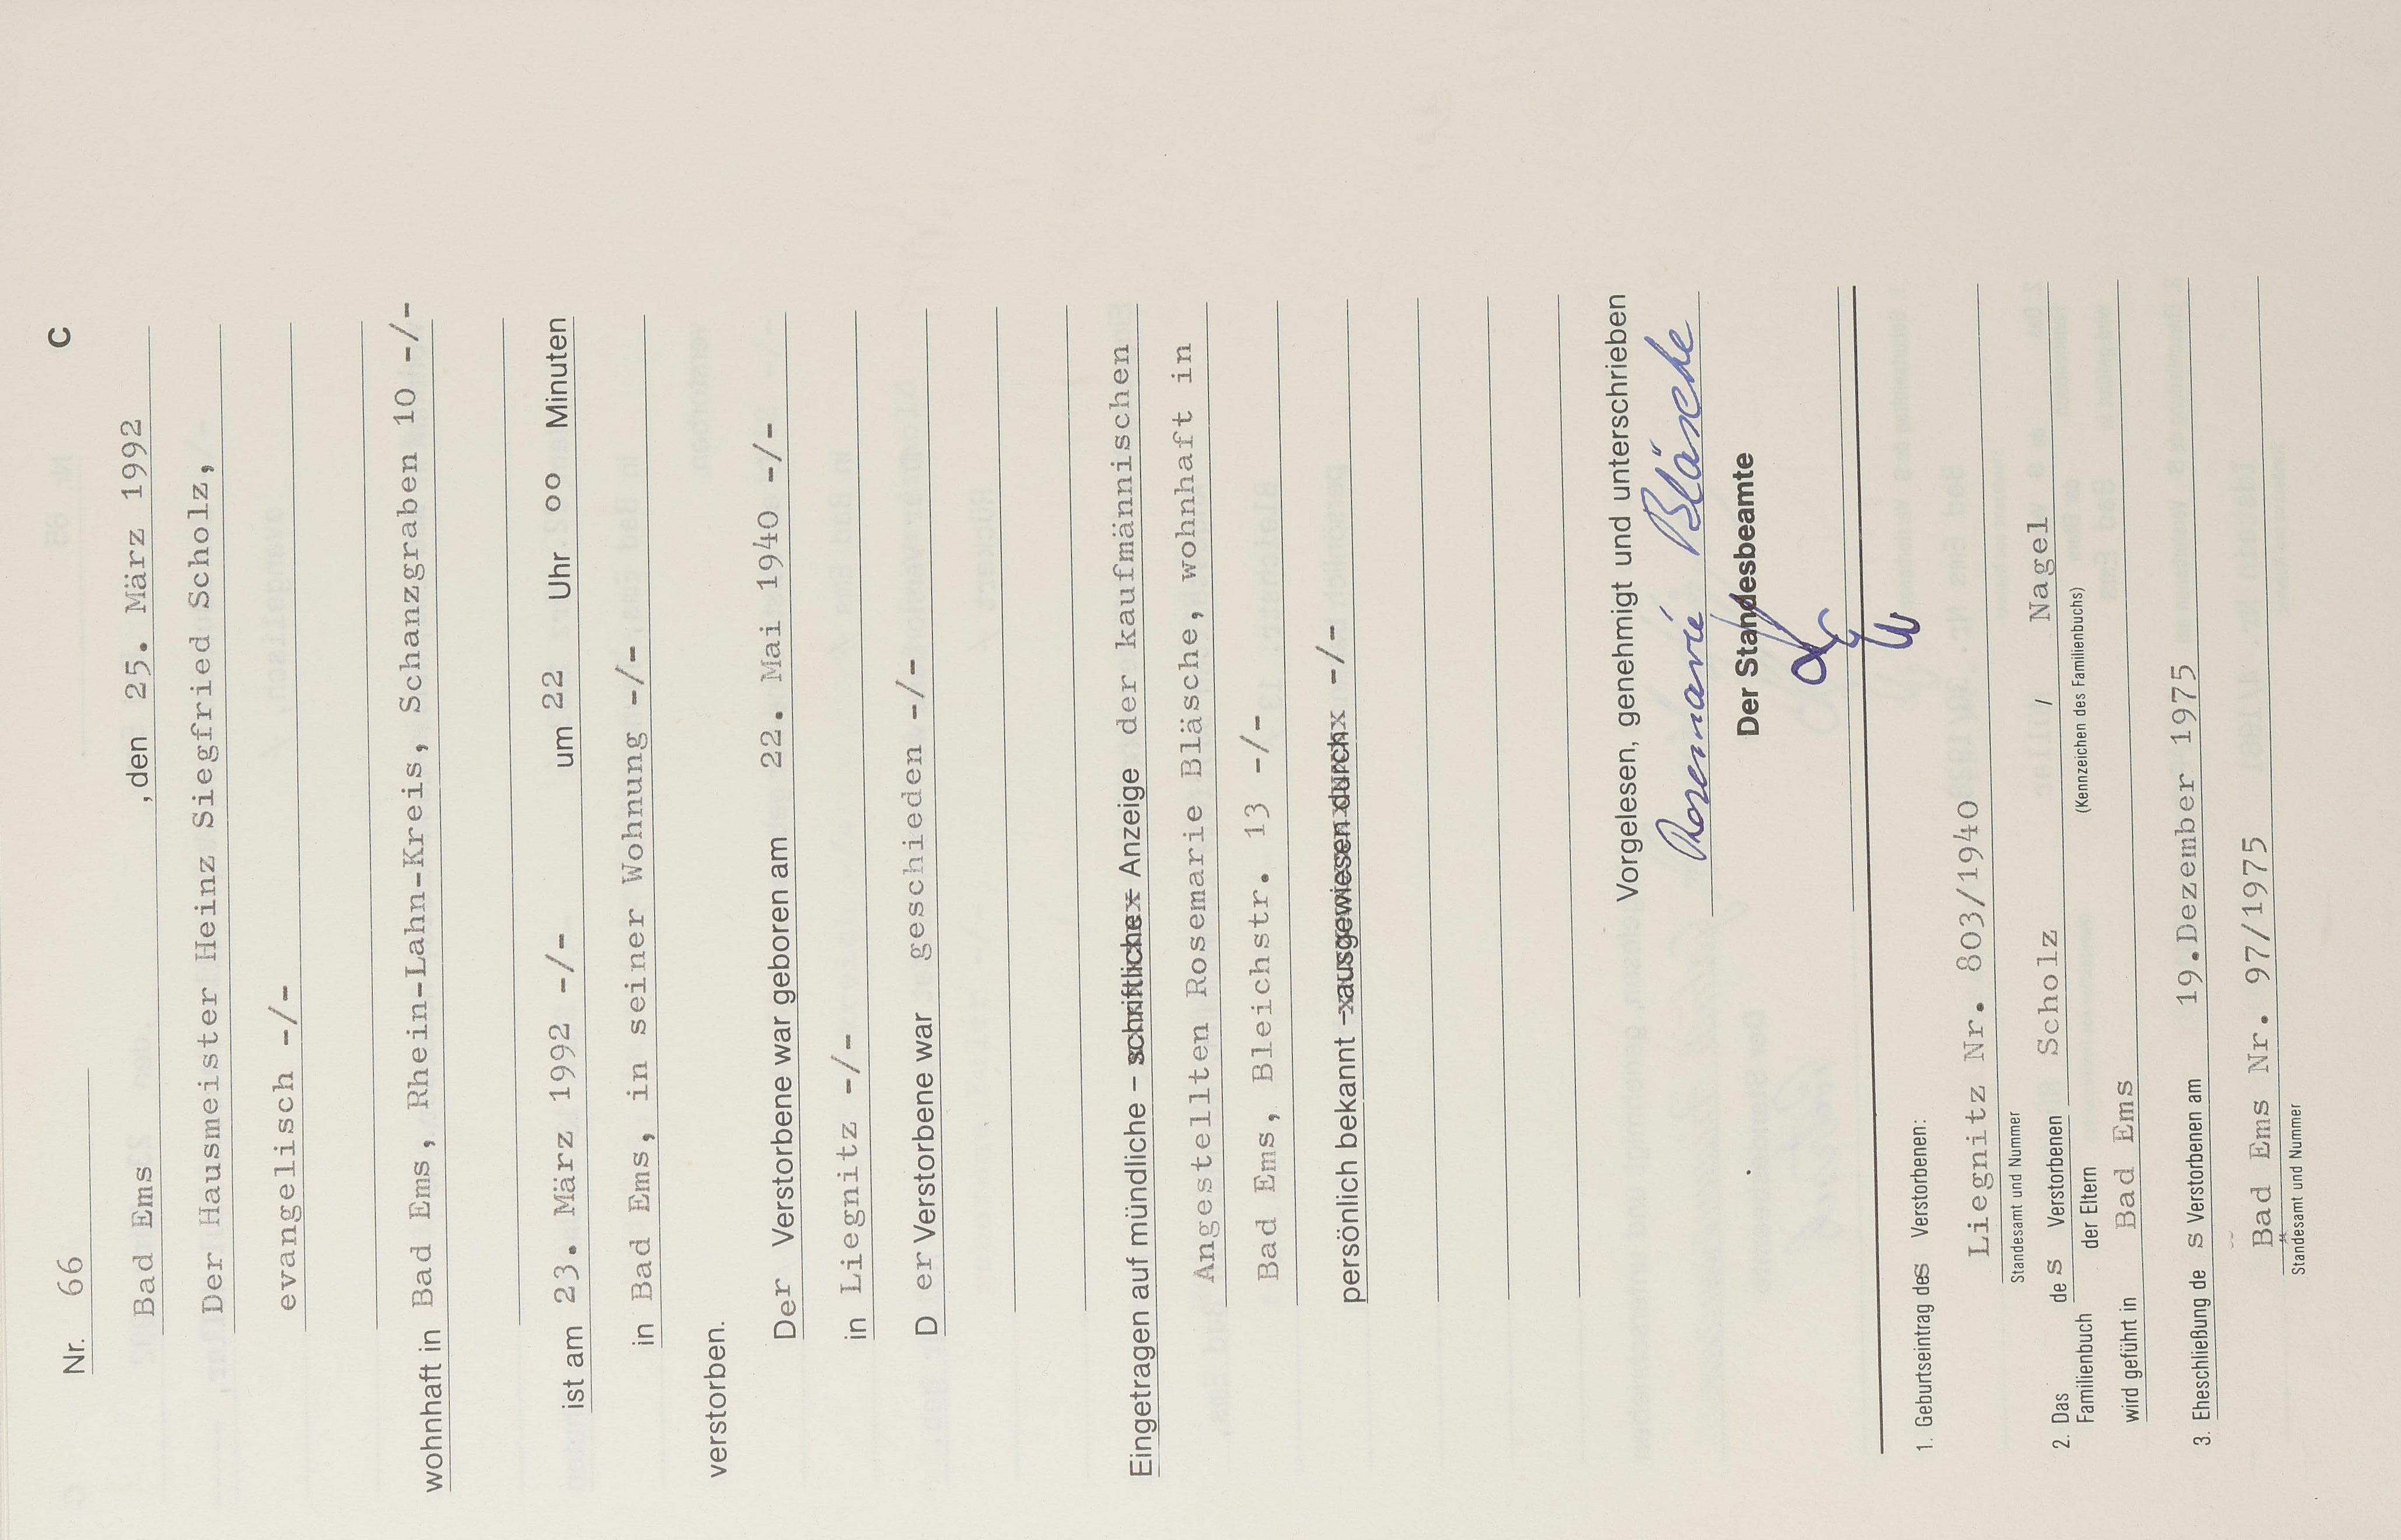 Nr. 66 C
Bad Ems , den 25. März 1992
Der Hausmeister Heinz Siegfried Scholz,
evangelisch -/-
wohnhaft in Bad Ems, Rhein-Lahn-Kreis, Schanzgraben 10 -/-
ist am 23. März 1992 -/- um 22 Uhr oo Minuten
in Bad Ems, in seiner Wohnung -/-
verstorben.
Der Verstorbene war geboren am 22. Mai 1940 -/-
in Liegnitz -/-
D er Verstorbene war geschieden -/-
Eingetragen auf mündliche – schriftliche – Anzeige der kaufmännischen
Angestellten Rosemarie Bläsche, wohnhaft in
Bad Ems, Bleichstr. 13 -/-
persönlich bekannt – ausgewiesen durch -/-
Vorgelesen, genehmigt und unterschrieben
Rosemarie Bläsche
Der Standesbeamte
1. Geburtseintrag des Verstorbenen:
Liegnitz Nr. 803/1940
Standesamt und Nummer
2. Das Familienbuch des Verstorbenen Scholz / Nagel
der Eltern (Kennzeichen des Familienbuchs)
wird geführt in Bad Ems
3. Eheschließung de s Verstorbenen am 19.Dezember 1975
Bad Ems Nr. 97/1975
Standesamt und Nummer